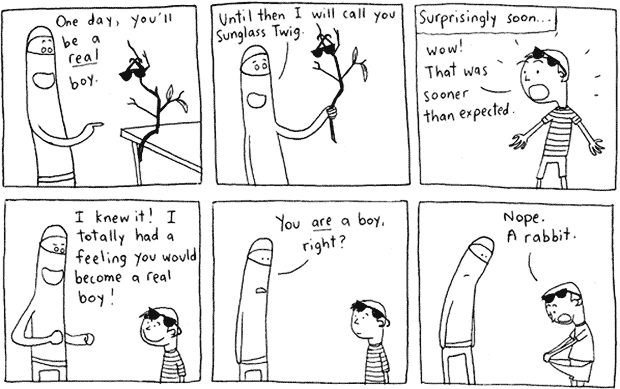 One day, you'll
be a
real
boy.
Until then I will call you
Sunglass Twig.
Surprisingly soon...
wow!
That was
sooner
than expected.
I knew it! I
totally had a
feeling you would
become a real
boy!
You are a boy,
right?
Nope.
A rabbit.